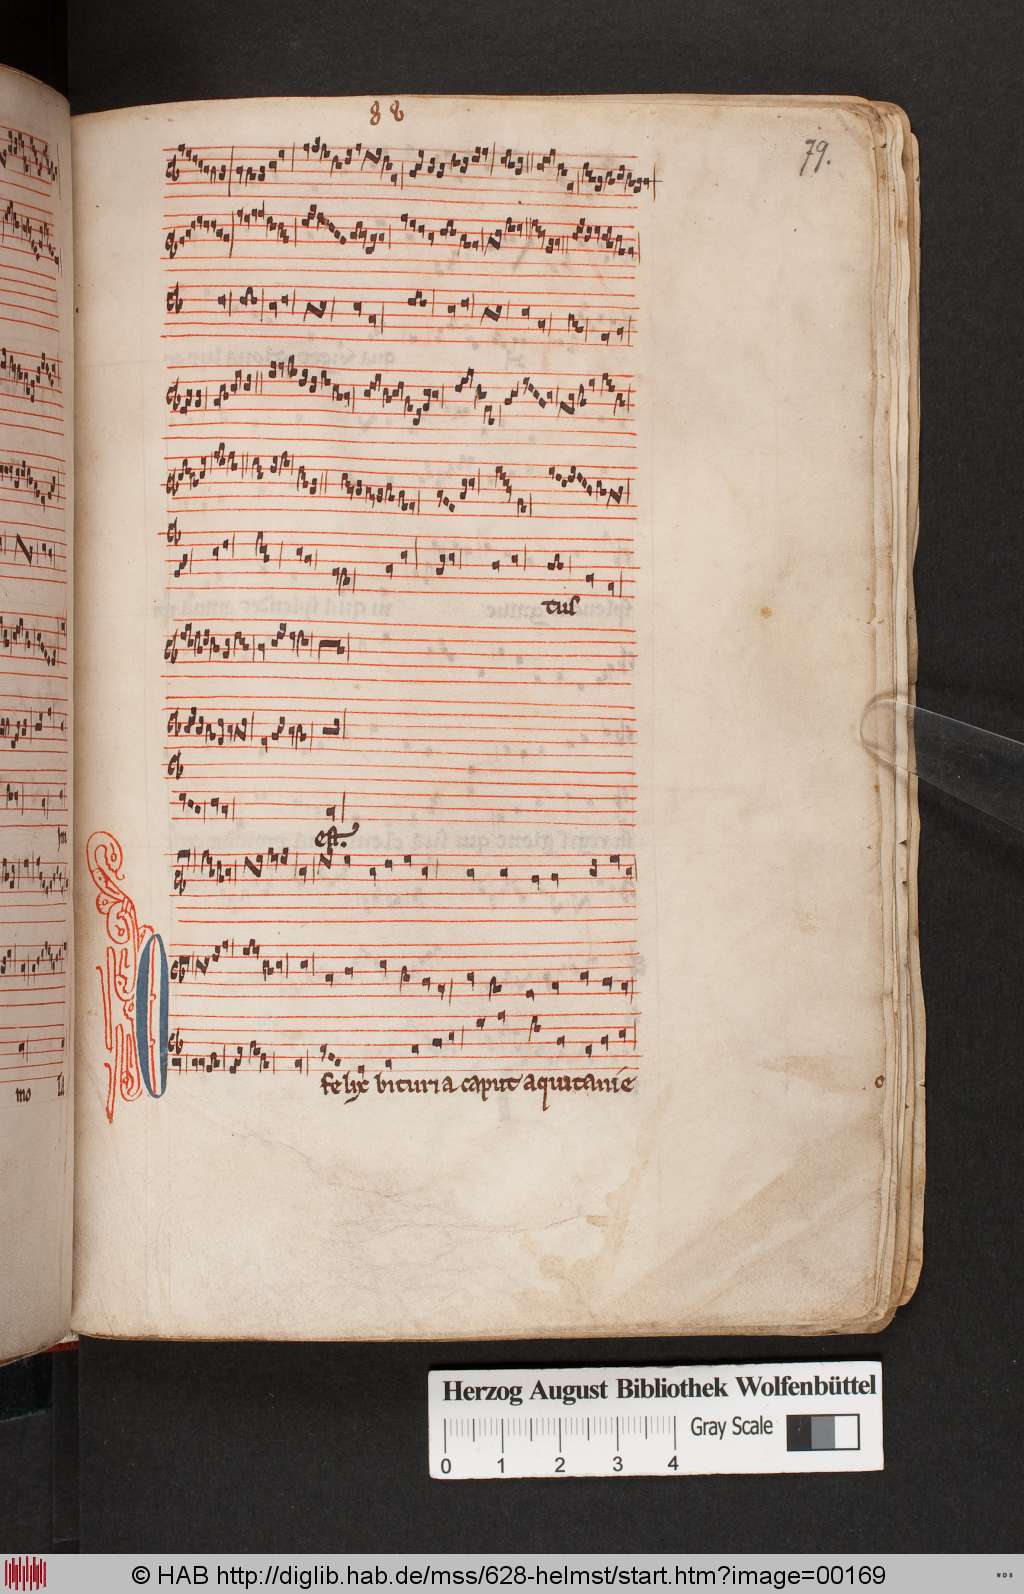 88
79.
tus
est.
O felix bituria caput aquitanie
mo
Herzog August Bibliothek Wolfenbüttel
Gray Scale
0 1 2 3 4
© HAB http://diglib.hab.de/mss/628-helmst/start.htm?image=00169